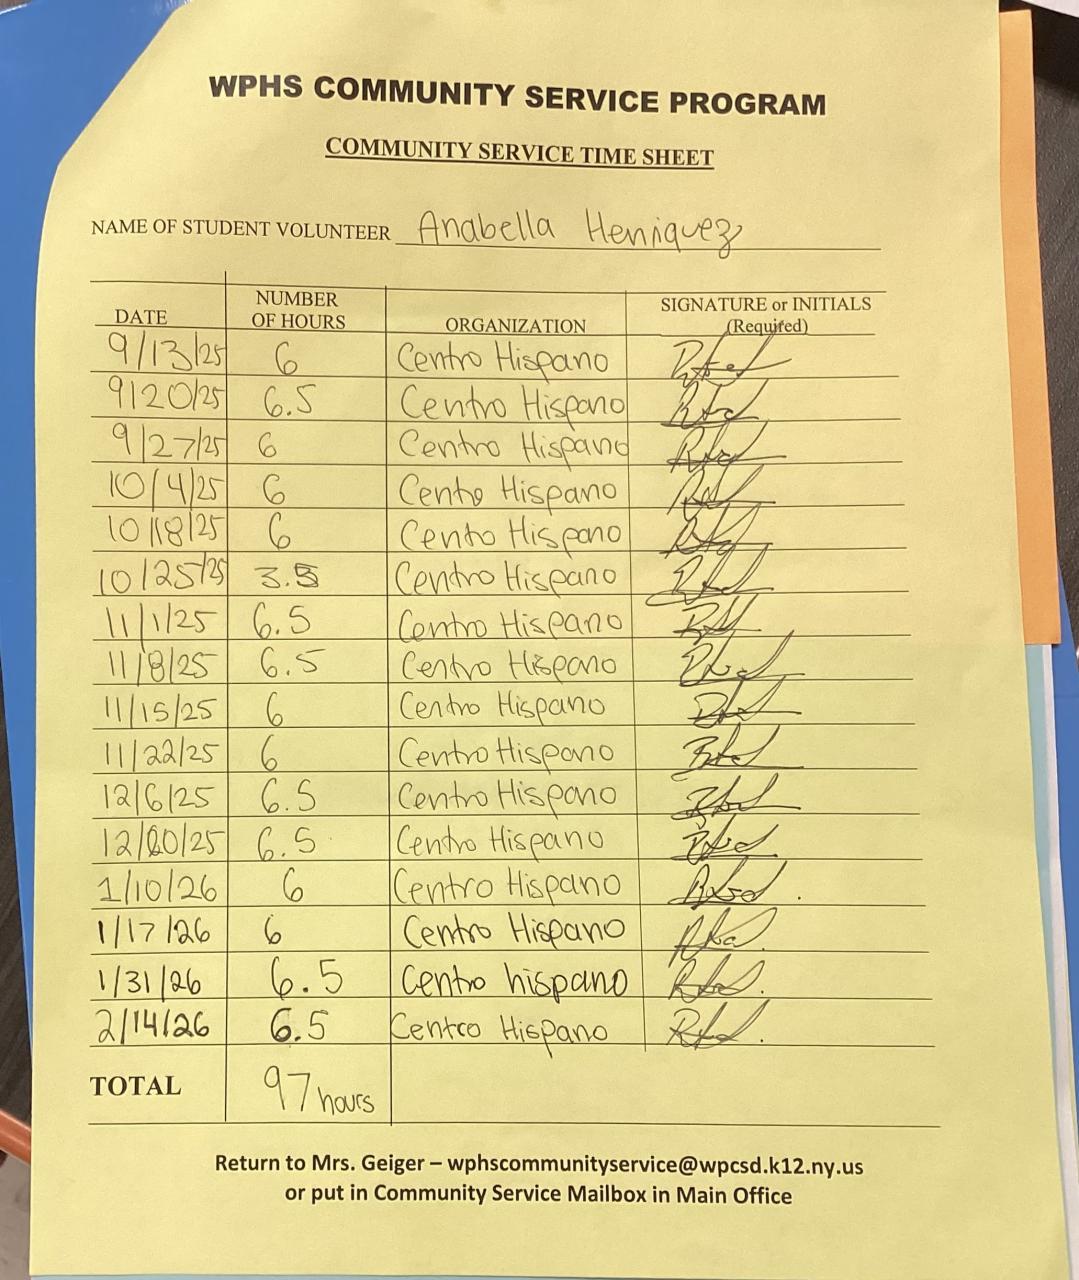 WPHS COMMUNITY SERVICE PROGRAM
COMMUNITY SERVICE TIME SHEET
NAME OF STUDENT VOLUNTEER Anabella Henriquez
DATE NUMBER OF HOURS ORGANIZATION SIGNATURE or INITIALS (Required)
9/13/25 6 Centro Hispano
9/20/25 6.5 Centro Hispano
9/27/25 6 Centro Hispano
10/4/25 6 Centro Hispano
10/18/25 6 Centro Hispano
10/25/25 3.5 Centro Hispano
11/1/25 6.5 Centro Hispano
11/8/25 6.5 Centro Hispano
11/15/25 6 Centro Hispano
11/22/25 6 Centro Hispano
12/6/25 6.5 Centro Hispano
12/20/25 6.5 Centro Hispano
1/10/26 6 Centro Hispano
1/17/26 6 Centro Hispano
1/31/26 6.5 Centro hispano
2/14/26 6.5 Centro Hispano
TOTAL 97 hours
Return to Mrs. Geiger – wphscommunityservice@wpcsd.k12.ny.us
or put in Community Service Mailbox in Main Office